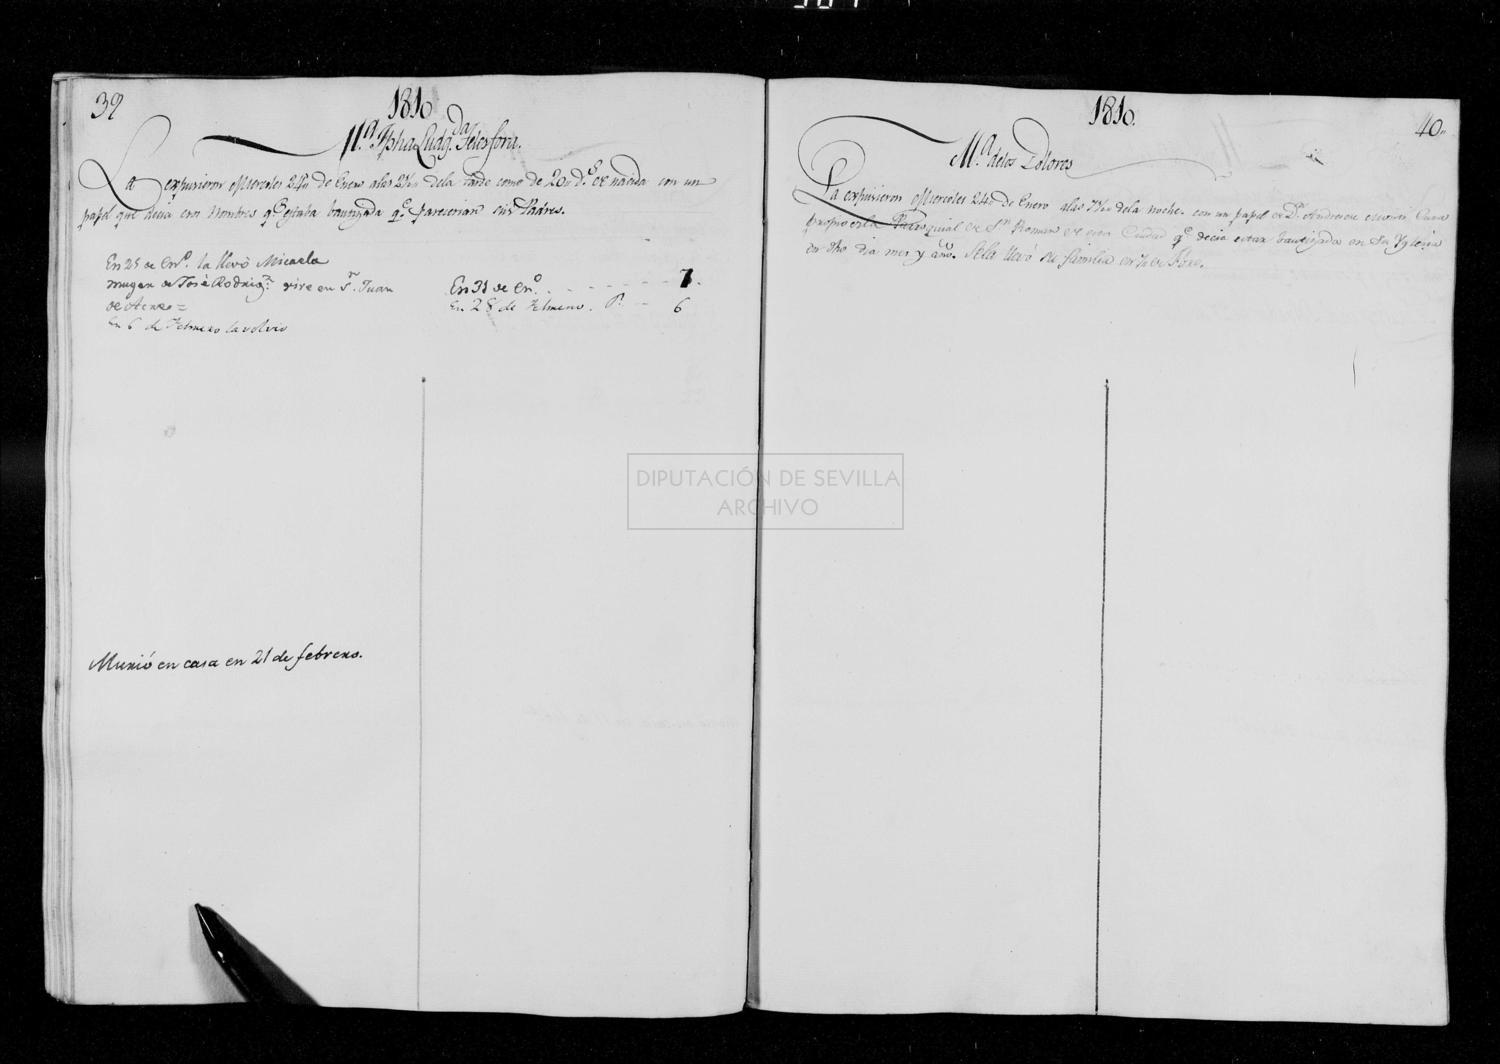 39
1810
M.ª Jpha Ludg.da Telesfora.
La expusieron Miercoles 24,, de Enero a las 2½ dela tarde como de 20,, d.s de nacida con un
papel que decia con Nombres q.e estaba bautizada q.e parecerian sus Padres.
En 25 de En.o la llevò Micaela
muger de Josè Rodrig.z vive en S.n Juan
de
En 6 de Febrero la volvio
En 31 de En.o 7.
En 28 de Febrero. P. 6
Murió en casa en 21 de febrero.
1810
40,,
M.ª delos Dolores
La expusieron Miercoles 24,, de Enero a las 7½ dela noche. con un papel de D.n Andres Cura
propio de la Parroquial de S.n Roman de esta Ciudad q.e decia estar bautizada en Su Yglesia
en dho dia mes y año. Se la llevó su familia en
DIPUTACIÓN DE SEVILLA
ARCHIVO